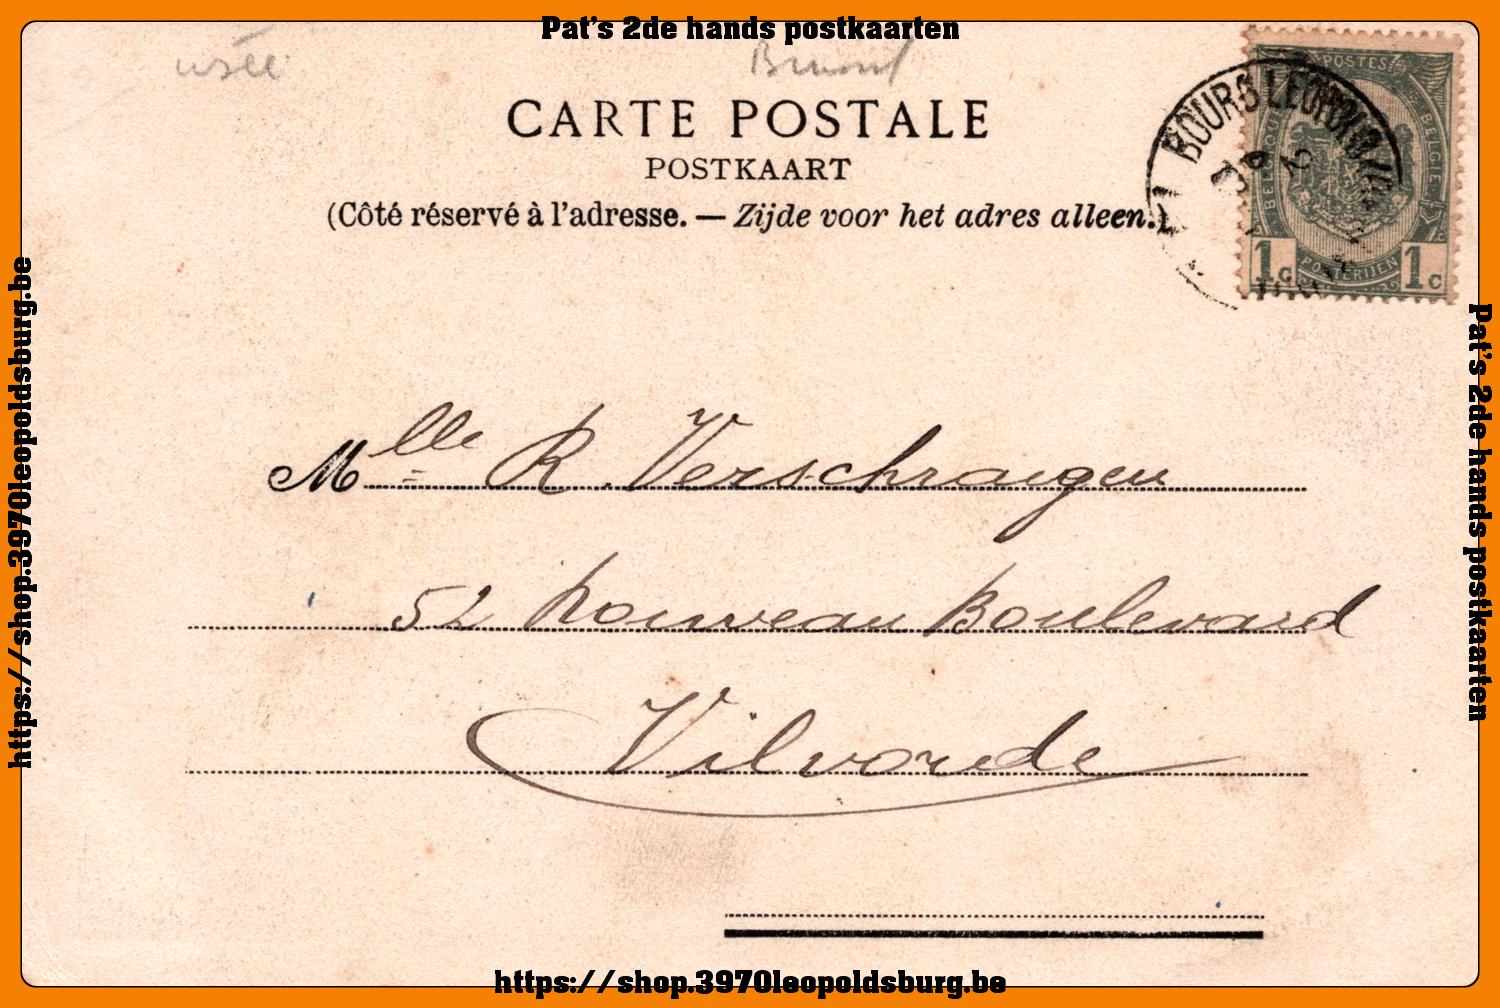 Pat's 2de hands postkaarten
usée
CARTE POSTALE
POSTKAART
(Côté réservé à l'adresse. — Zijde voor het adres alleen.)
BOURG LEOPOLD
POSTES
BELGIQUE
BELGIË
POSTERIJEN
1c 1c
Mlle R. Verschraegen
52 Nouveau Boulevard
Vilvorde
https://shop.3970leopoldsburg.be
Pat's 2de hands postkaarten
https://shop.3970leopoldsburg.be